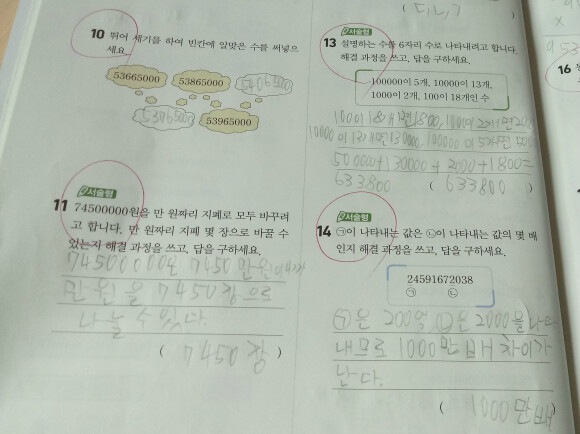 ( ㄷ, ㄴ, ㄱ )
10 뛰어 세기를 하여 빈칸에 알맞은 수를 써넣으
세요.
53665000 53865000 54065000
53765000 53965000
서술형
11 74500000원을 만 원짜리 지폐로 모두 바꾸려
고 합니다. 만 원짜리 지폐 몇 장으로 바꿀 수
있는지 해결 과정을 쓰고, 답을 구하세요.
74500000은 7450만원이기
만 원을 7450장으로
나눌 수 있다.
( 7450 장 )
서술형
13 설명하는 수를 6자리 수로 나타내려고 합니다.
해결 과정을 쓰고, 답을 구하세요.
100000이 5개, 10000이 13개,
1000이 2개, 100이 18개인 수
100이 18개면 1800,
10000이 13개면 130000, 100000이 5개면
500000+130000+2000+1800=
633800 ( 633800 )
서술형
14 ㉠이 나타내는 값은 ㉡이 나타내는 값의 몇 배
인지 해결 과정을 쓰고, 답을 구하세요.
24591672038
㉠ ㉡
㉠은 200억, ㉡은 2000을 나타
내므로 1000만 배 차이가
난다.
( 1000만 배 )
16